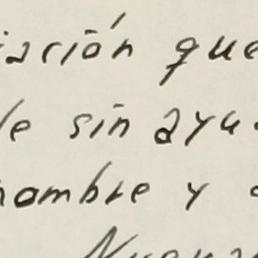 iación que
le sin ayu
nombre y